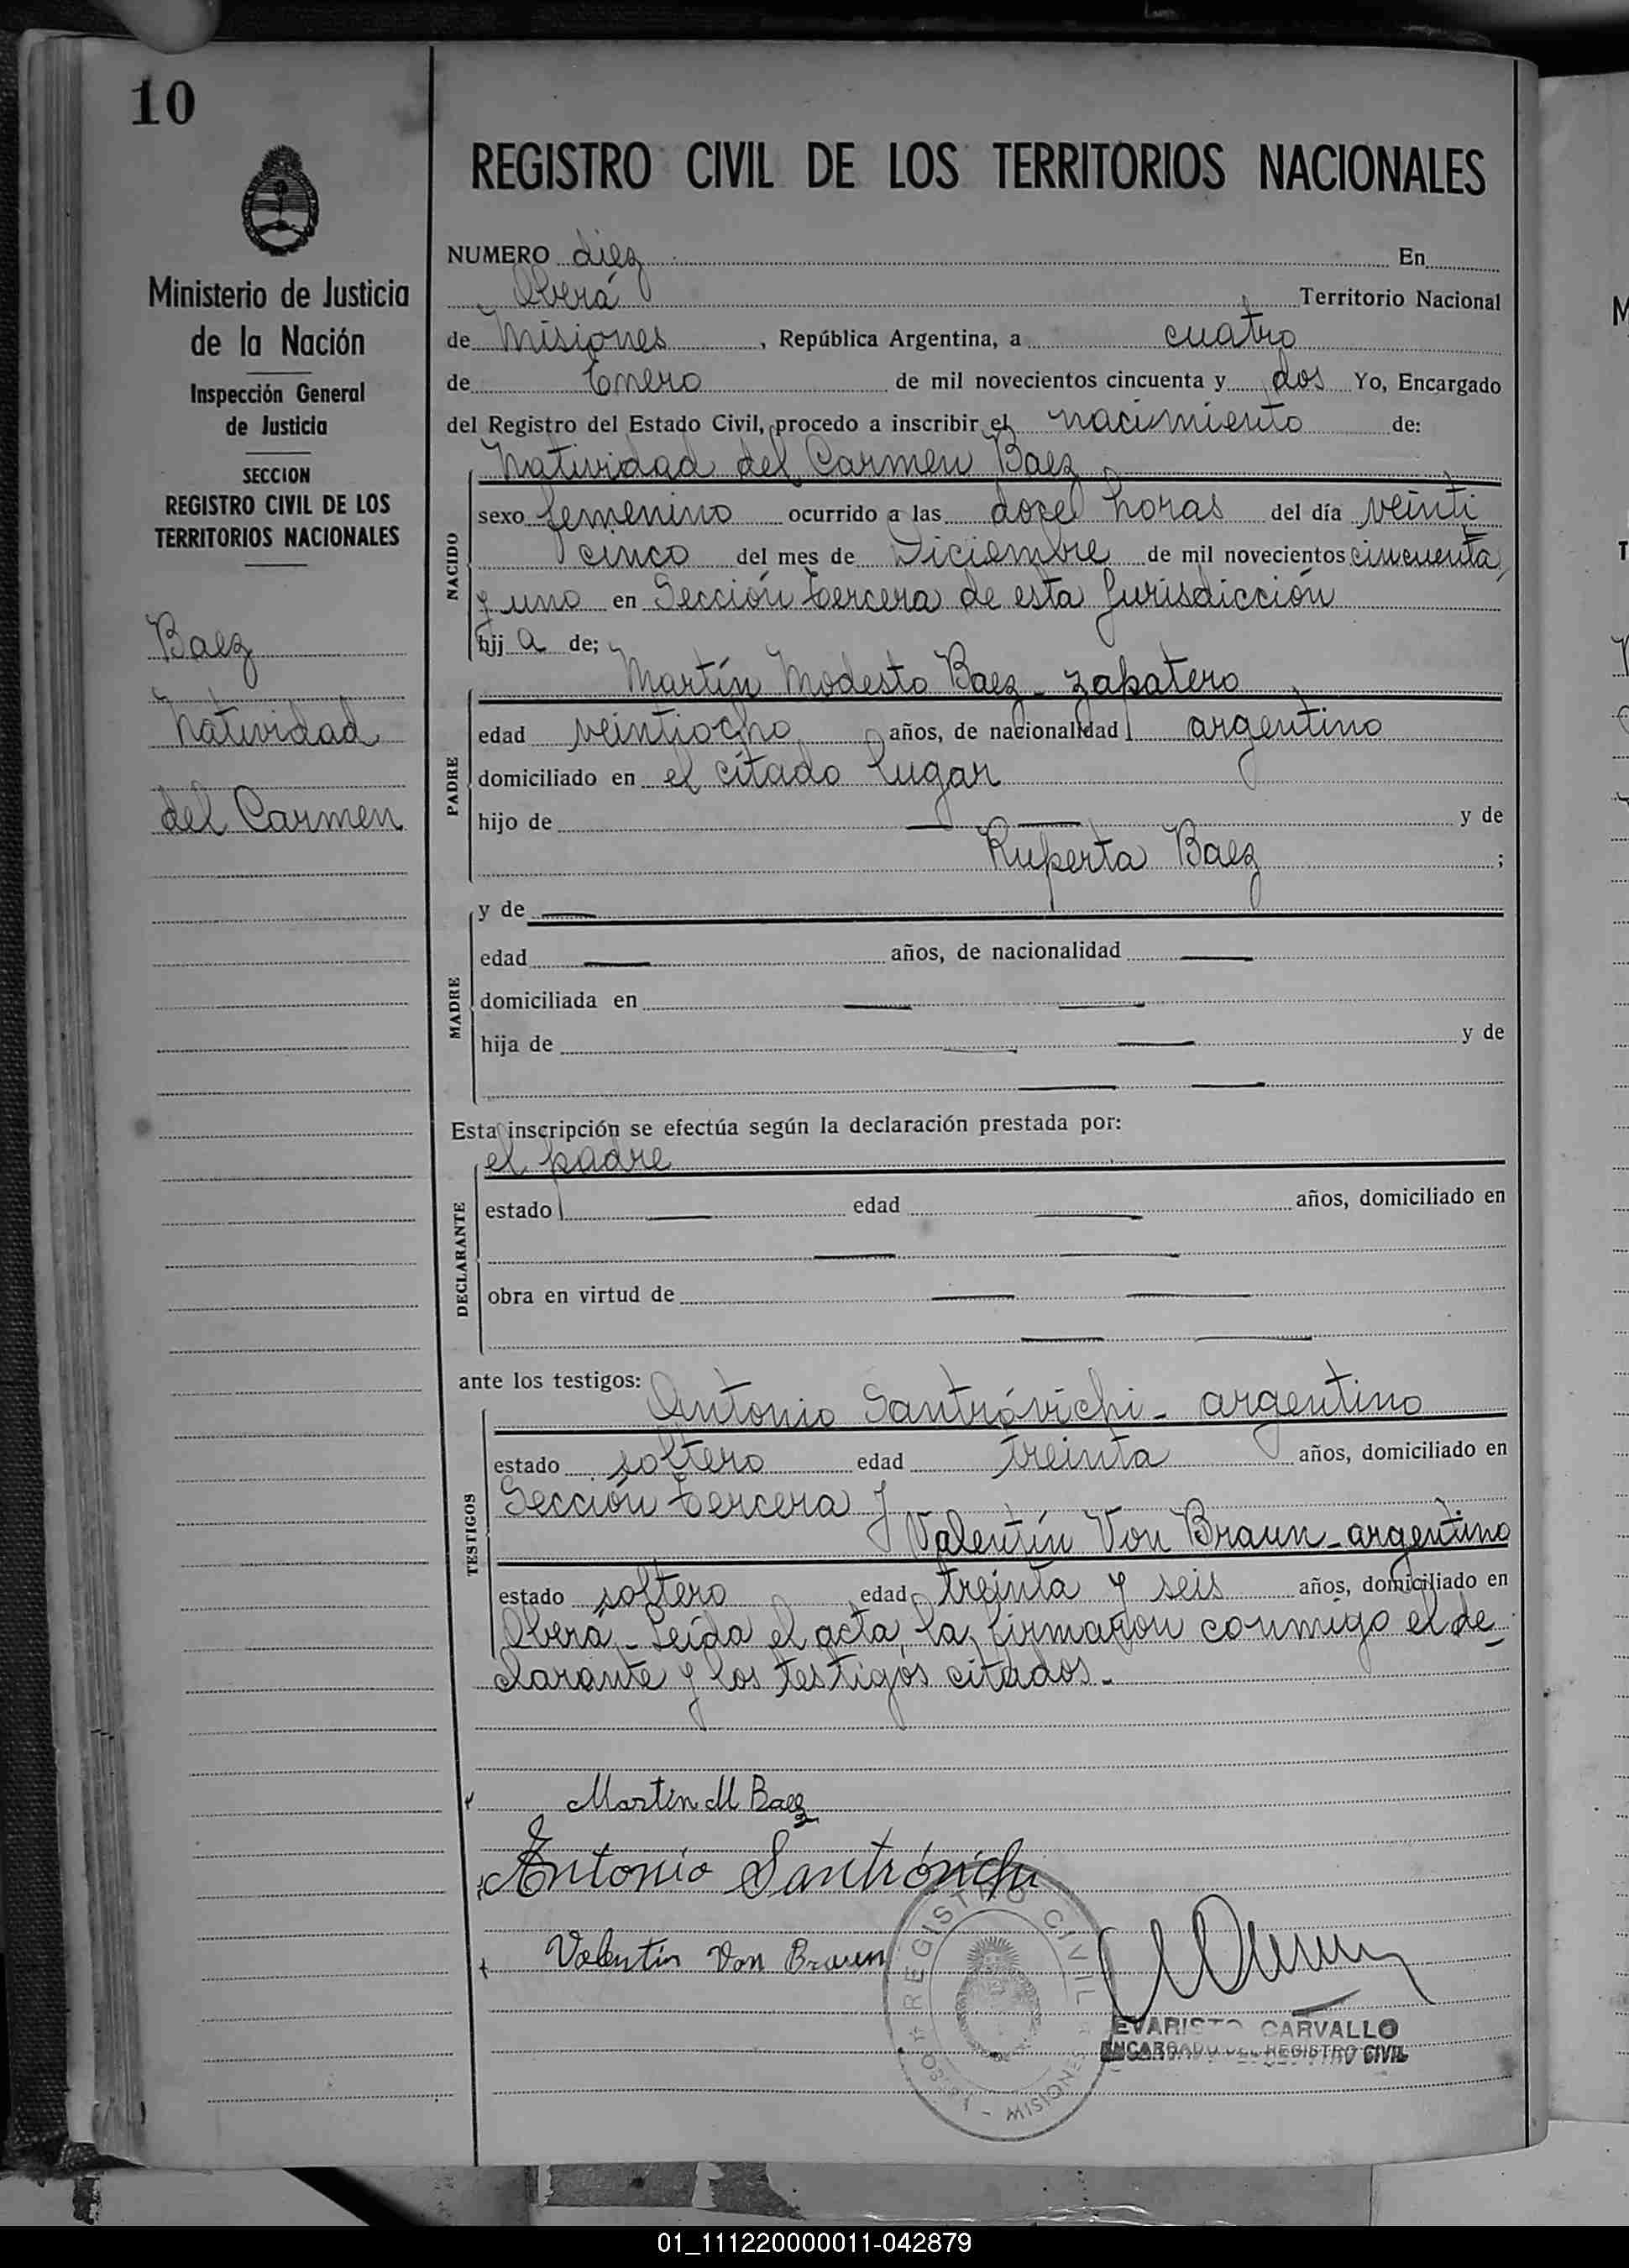 10
Ministerio de Justicia
de la Nación
Inspección General
de Justicia
SECCION
REGISTRO CIVIL DE LOS
TERRITORIOS NACIONALES
Baez
Natividad
del Carmen
REGISTRO CIVIL DE LOS TERRITORIOS NACIONALES
NUMERO diez En
Oberá Territorio Nacional
de Misiones, República Argentina, a cuatro
de Enero de mil novecientos cincuenta y dos Yo, Encargado
del Registro del Estado Civil, procedo a inscribir el nacimiento de:
Natividad del Carmen Baez
NACIDO
sexo femenino ocurrido a las doce horas del día veinti
cinco del mes de Diciembre de mil novecientos cincuenta
y uno en Sección tercera de esta Jurisdicción
hij a de;
Martín Modesto Baez - zapatero
PADRE
edad veintiocho años, de nacionalidad argentino
domiciliado en el citado lugar
hijo de y de
Ruperta Baez ;
MADRE
y de
edad años, de nacionalidad
domiciliada en
hija de y de
Esta inscripción se efectúa según la declaración prestada por:
el padre
DECLARANTE
estado edad años, domiciliado en
obra en virtud de
ante los testigos:
Antonio Santróvichi - argentino
TESTIGOS
estado soltero edad treinta años, domiciliado en
Sección tercera y
Valentín Von Braun - argentino
estado soltero edad treinta y seis años, domiciliado en
Oberá - Leída el acta, la firmaron conmigo el de
clarante y los testigos citados.-
Martin M Baez
Antonio Santróvichi
Valentin Von Braun
REGISTRO CIVIL
MISIONES
EVARISTO CARVALLO
ENCARGADO DEL REGISTRO CIVIL
01_111220000011-042879